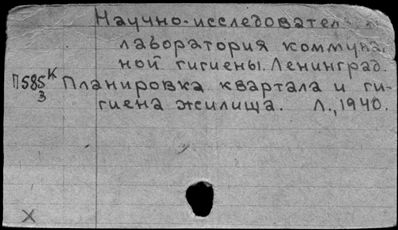 Научно-исследовател
лаборатория коммуна
ной гигиены. Ленинград.
П585К Планировка квартала и ги-
3 гиена жилища. Л., 1940.
X